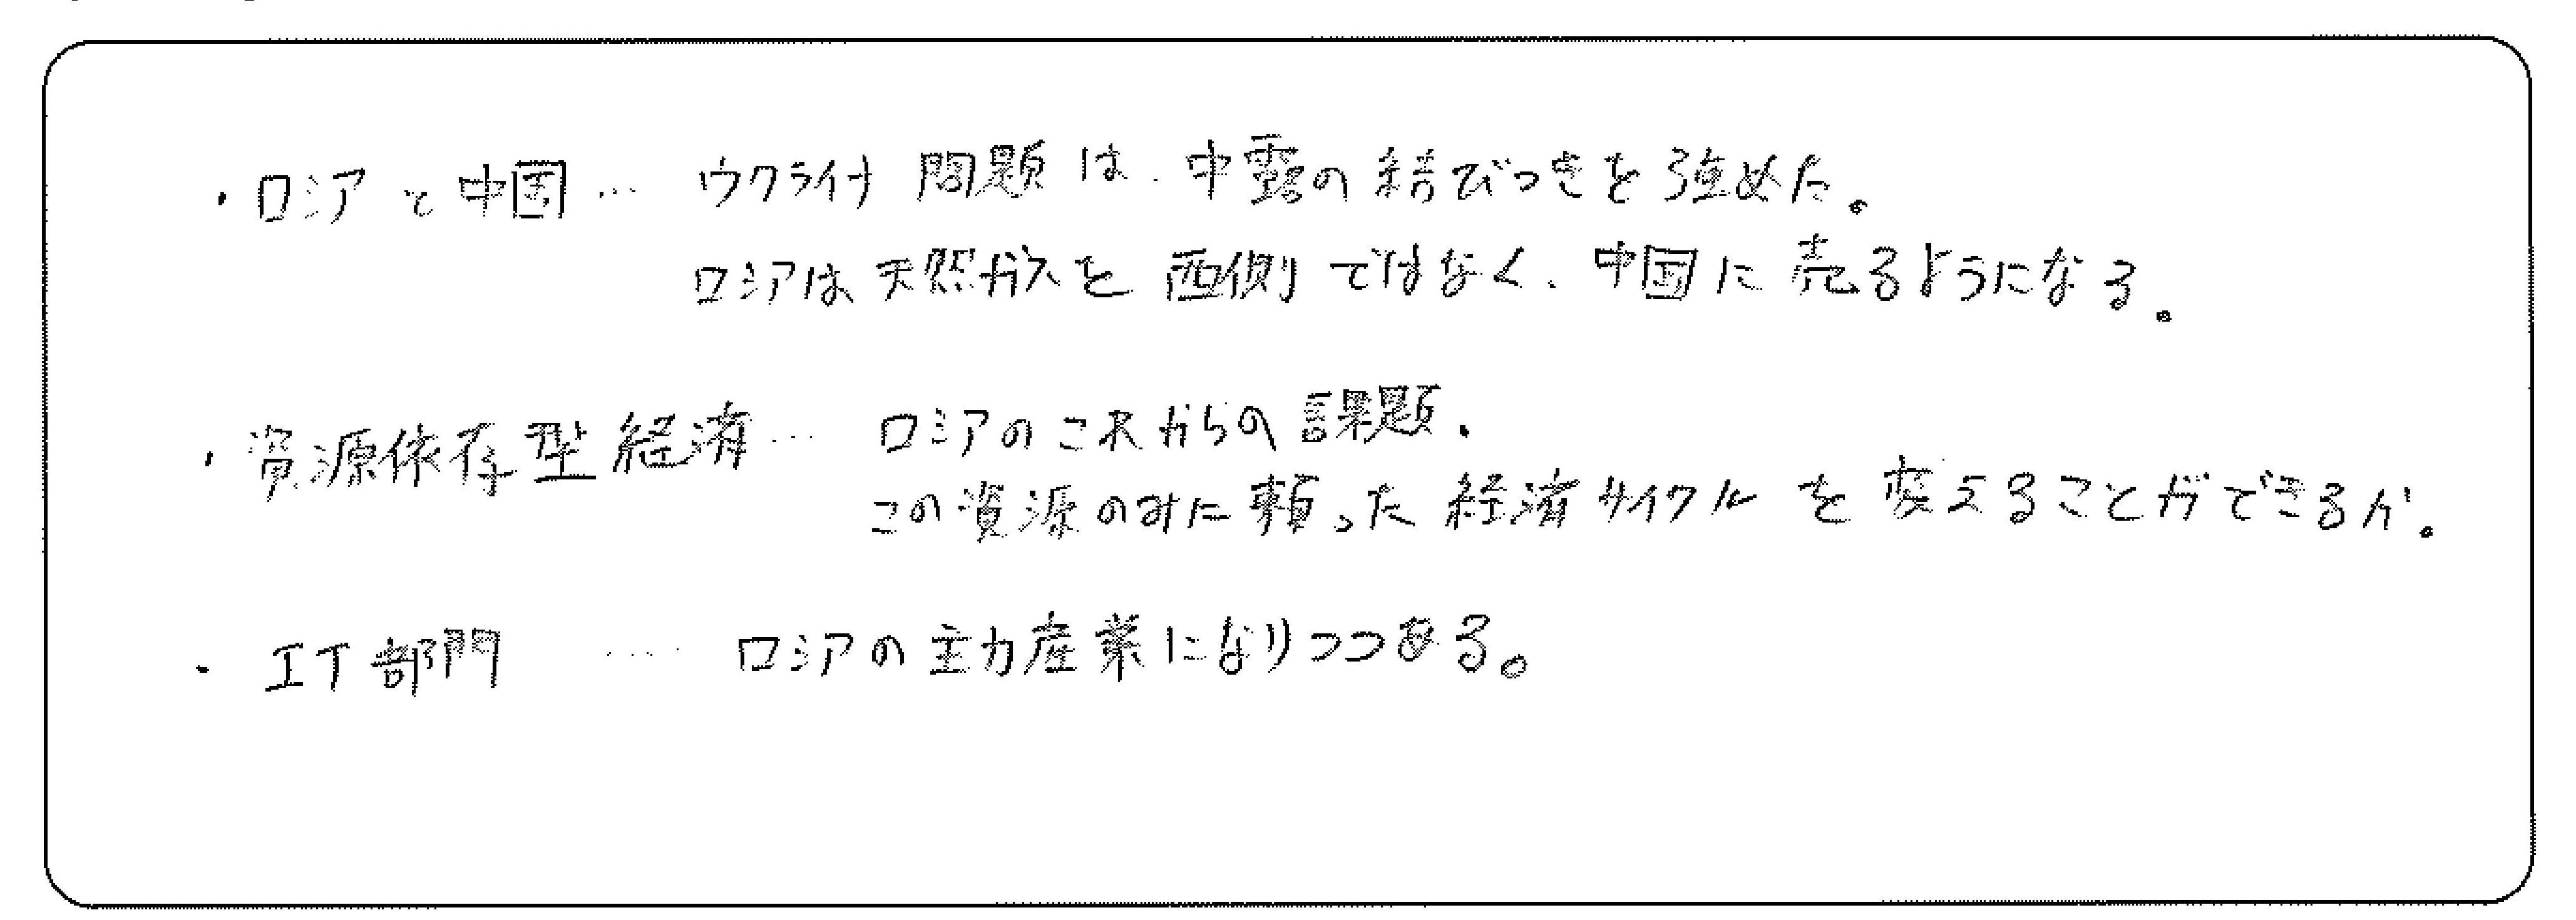 ・ロシアと中国… ウクライナ問題は、中露の結びつきを強めた。
ロシアは天然ガスを西側ではなく、中国に売るようになる。
・資源依存型経済… ロシアのこれからの課題.
この資源のみに頼った経済サイクルを変えることができるか。
・IT部門 …… ロシアの主力産業になりつつある。